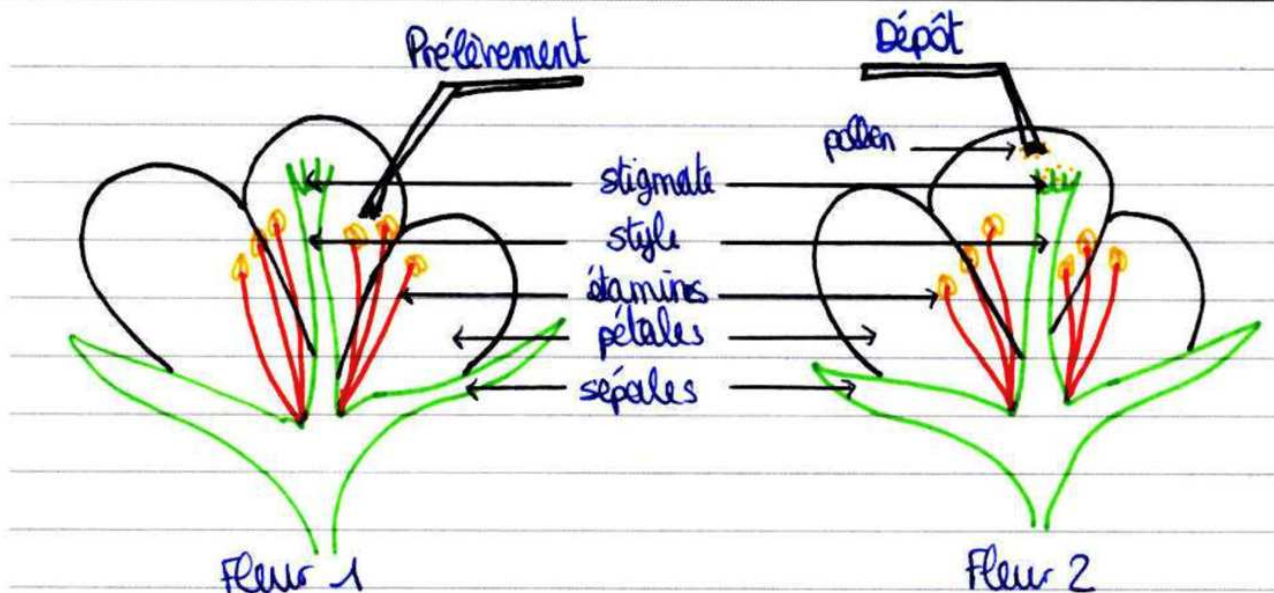 Prélèvement
Dépôt
pollen
stigmate
style
étamines
pétales
sépales
Fleur 1
Fleur 2